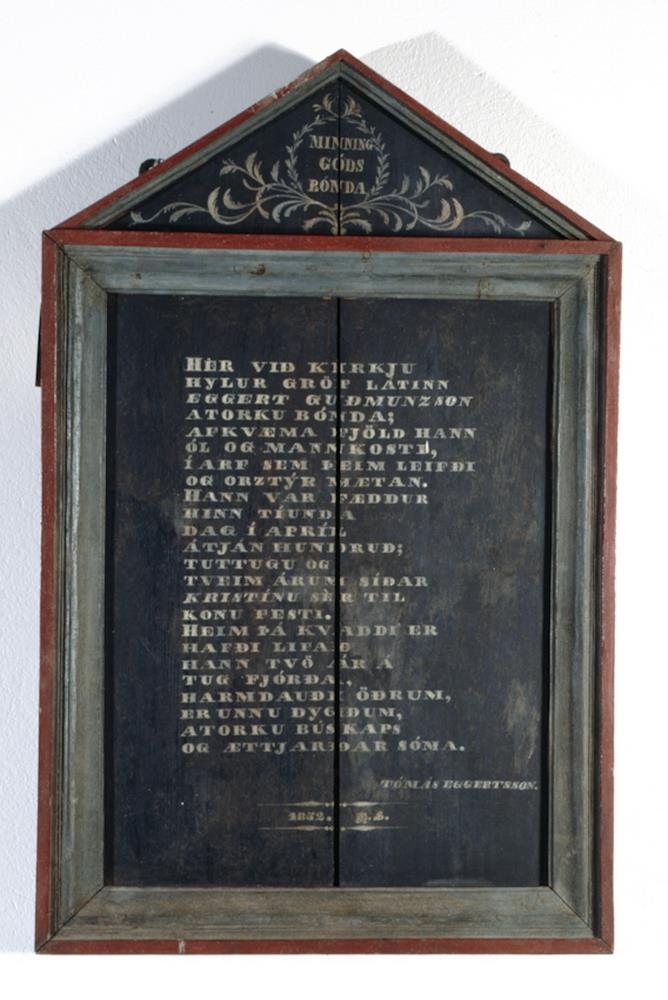 MINNING
GÓDS
BÓNDA
HÈR VIÐ KIRKJU
HYLUR GRÖF LÁTINN
EGGERT GUÐMUNZSON
ATORKU BÓNDA;
AFKVÆMA FJÖLD HANN
ÓL OG MANNKOSTI,
Í ARF SEM ÞEIM LEIFÐI
OG ORZTÝR MÆTAN.
HANN VAR FÆDDUR
HINN TÍUNDA
DAG Í APRÍL
ÁTJÁN HUNDRUÐ;
TUTTUGU OG
TVEIM ÁRUM SÍÐAR
KRISTÍNU SÈR TIL
KONU FESTI.
HEIM ÞÁ KVADDI ER
HAFÐI LIFAÐ
HANN TVÖ ÁR Á
TUG FJÓRÐA,
HARMDAUÐI ÖÐRUM,
ER UNNU DYGÐUM,
ATORKU BÚSKAPS
OG ÆTTJARÐAR SÓMA.
TÓMÁS EGGERTSSON.
1832.